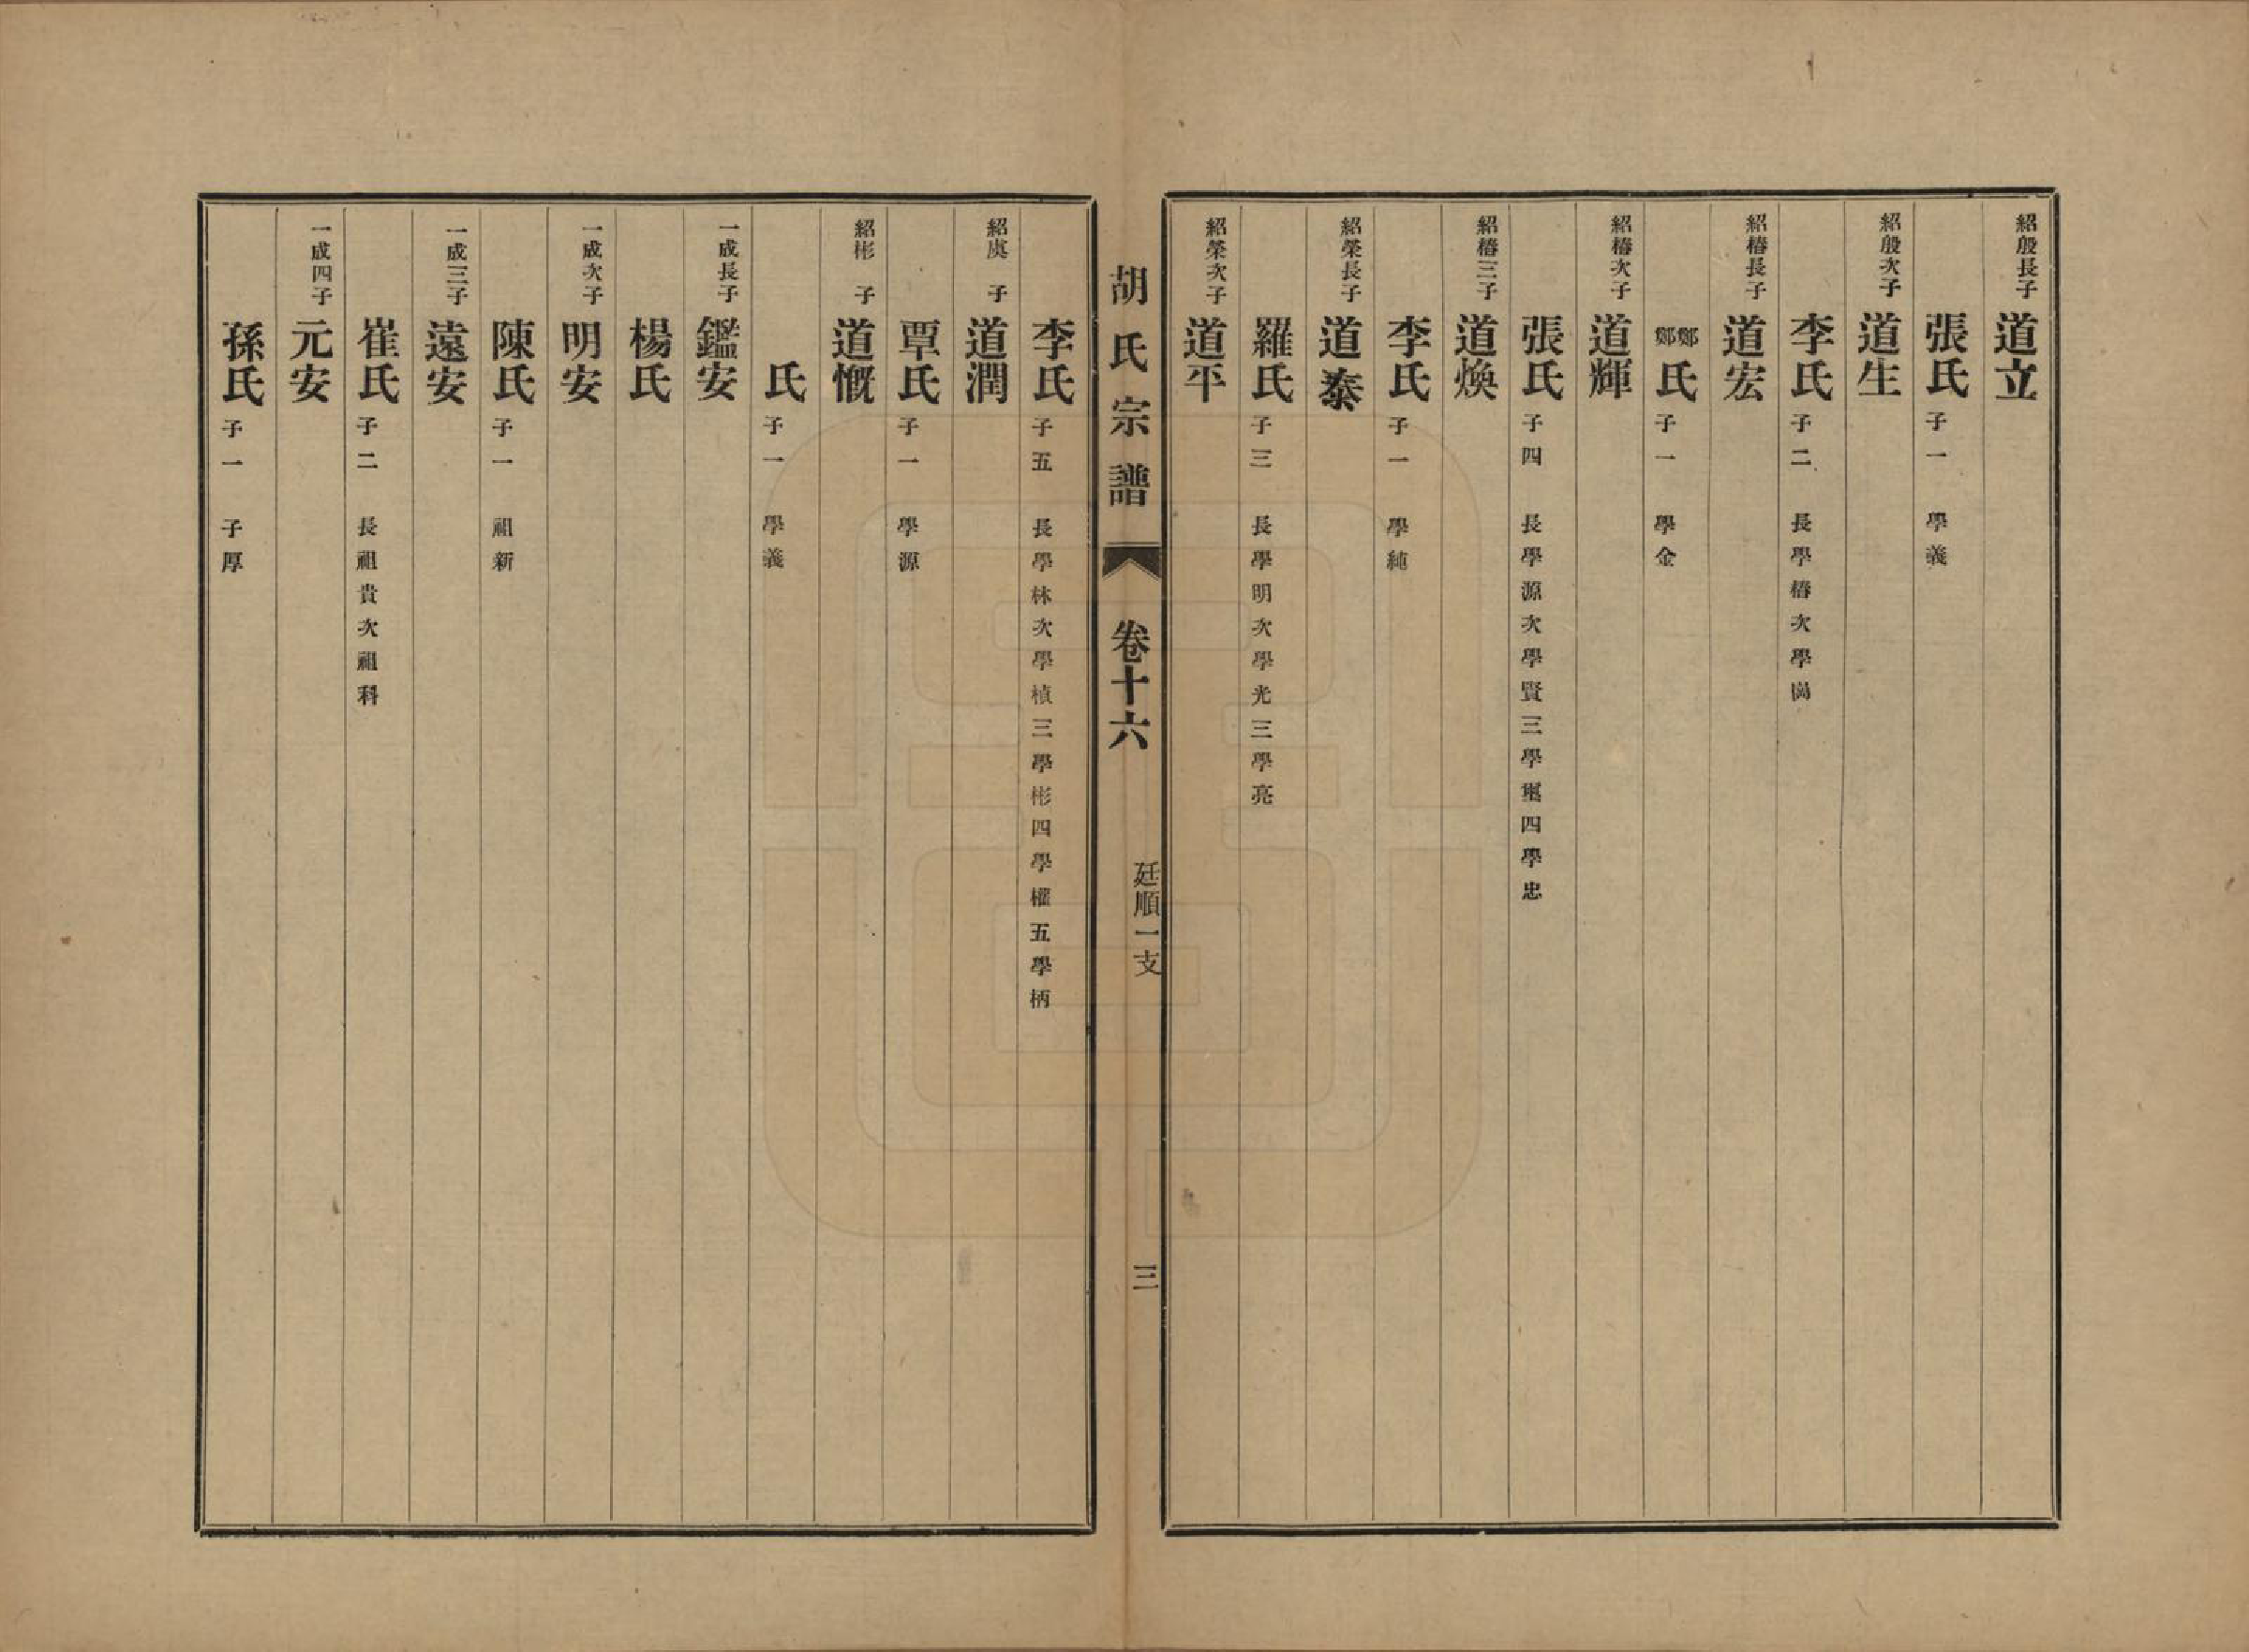 紹殷長子 道立
張氏 子一 學義
紹殷次子 道生
李氏 子二 長學椿次學崗
紹椿長子 道宏
鄭鄭氏 子一 學金
紹椿次子 道輝
張氏 子四 長學源次學賢三學聖四學忠
紹椿三子 道煥
李氏 子一 學純
紹榮長子 道泰
羅氏 子三 長學明次學光三學亮
紹榮次子 道平
胡氏宗譜 卷十六 廷順一支 三
李氏 子五 長學林次學楨三學彬四學權五學柄
紹虞子 道潤
覃氏 子一 學源
紹彬子 道慨
氏 子一 學義
一成長子 鑑安
楊氏
一成次子 明安
陳氏 子一 祖新
一成三子 遠安
崔氏 子二 長祖貴次祖科
一成四子 元安
孫氏 子一 子厚